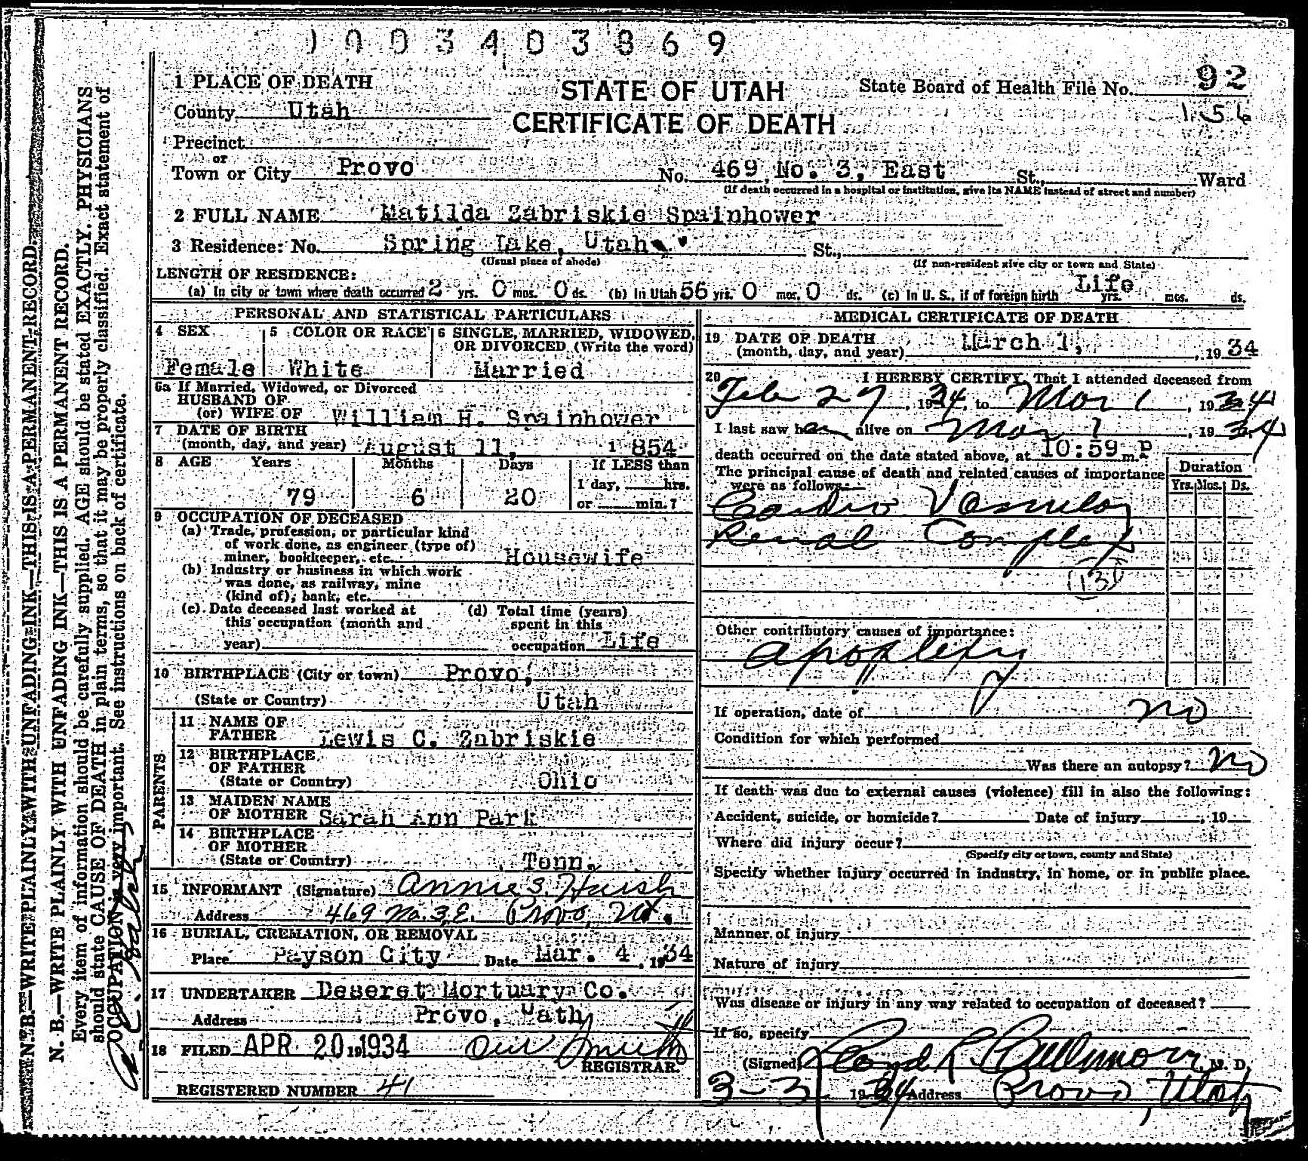 1003403869
1 PLACE OF DEATH
STATE OF UTAH
CERTIFICATE OF DEATH
State Board of Health File No. 92
156
County Utah
Precinct
or
Town or City Provo No. 469 No. 3, East St., Ward
(If death occurred in a hospital or institution, give its NAME instead of street and number)
2 FULL NAME Matilda Zabriskie Spainhower
3 Residence: No. Spring Lake, Utah St.,
(Usual place of abode) (If non-resident give city or town and State)
LENGTH OF RESIDENCE:
(a) In city or town where death occurred 2 yrs. 0 mos. 0 ds. (b) In Utah 56 yrs. 0 mos. 0 ds. (c) In U. S., if of foreign birth Life yrs. mos. ds.
PERSONAL AND STATISTICAL PARTICULARS
4 SEX Female
5 COLOR OR RACE White
6 SINGLE, MARRIED, WIDOWED, OR DIVORCED (Write the word) Married
6a If Married, Widowed, or Divorced
HUSBAND OF
(or) WIFE OF William H. Spainhower
7 DATE OF BIRTH
(month, day, and year) August 11, 1854
8 AGE Years 79 Months 6 Days 20
If LESS than
1 day, hrs.
or min.?
9 OCCUPATION OF DECEASED
(a) Trade, profession, or particular kind
of work done, as engineer (type of)
miner, bookkeeper, etc. Housewife
(b) Industry or business in which work
was done, as railway, mine
(kind of), bank, etc.
(c) Date deceased last worked at
this occupation (month and
year)
(d) Total time (years)
spent in this
occupation Life
10 BIRTHPLACE (City or town) Provo,
(State or Country) Utah
PARENTS
11 NAME OF
FATHER Lewis C. Zabriskie
12 BIRTHPLACE
OF FATHER
(State or Country) Ohio
13 MAIDEN NAME
OF MOTHER Sarah Ann Park
14 BIRTHPLACE
OF MOTHER
(State or Country) Tenn.
15 INFORMANT (Signature) Annie S. Huish
Address 469 No. 3 E. Provo, Ut.
16 BURIAL, CREMATION, OR REMOVAL
Place Payson City Date Mar. 4, 1934
17 UNDERTAKER Deseret Mortuary Co.
Address Provo, Uath
18 FILED APR 20 1934
REGISTRAR.
REGISTERED NUMBER 41
MEDICAL CERTIFICATE OF DEATH
19 DATE OF DEATH
(month, day, and year) March 1, 1934
20 I HEREBY CERTIFY, That I attended deceased from
Feb 27, 1934, to Mar 1, 1934
I last saw her alive on Mar 1, 1934
death occurred on the date stated above, at 10:59 P m.
The principal cause of death and related causes of importance
were as follows:
Duration
Yrs. Mos. Ds.
Cardio Vascular
Renal Complex
(131)
Other contributory causes of importance:
Apoplexy
If operation, date of no
Condition for which performed
Was there an autopsy? No
If death was due to external causes (violence) fill in also the following:
Accident, suicide, or homicide? Date of injury , 19
Where did injury occur?
(Specify city or town, county and State)
Specify whether injury occurred in industry, in home, or in public place.
Manner of injury
Nature of injury
Was disease or injury in any way related to occupation of deceased?
If so, specify
(Signed) Lloyd L. Cullimore, M. D.
3-3 1934 Address Provo, Utah
N. B.—WRITE PLAINLY WITH UNFADING INK—THIS IS A PERMANENT RECORD.
N. B.—WRITE PLAINLY WITH UNFADING INK—THIS IS A PERMANENT RECORD.
Every item of information should be carefully supplied. AGE should be stated EXACTLY. PHYSICIANS
should state CAUSE OF DEATH in plain terms, so that it may be properly classified. Exact statement of
OCCUPATION is very important. See instructions on back of certificate.